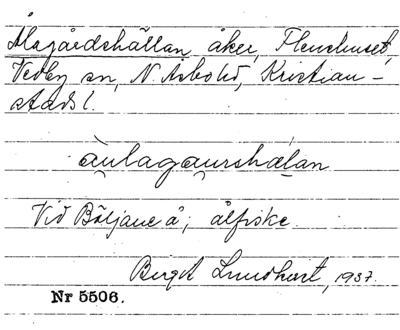 Ålagårdshällan åker, Flenshuset,
Vedby sn, N. Åsbo hd, Kristian-
stads l.
àulagaurshælan
Vid Böljane å; ålfiske.
Birgit Lundkart, 1937.
Nr 5506.